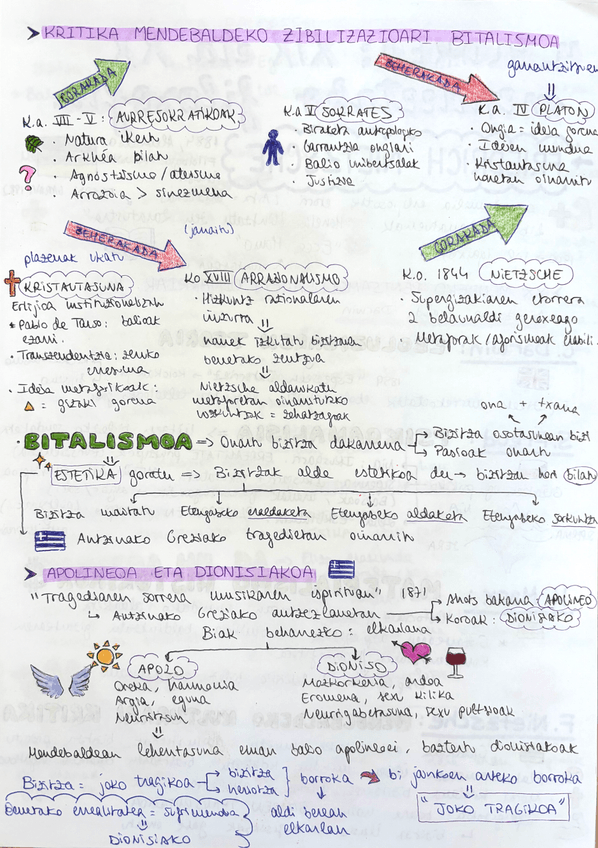 > KRITIKA MENDEBALDEKO ZIBILIZAZIOARI BITALISMOA
GORAKADA
BEHERAKADA
K.a. VII - V: AURRESOKRATIKOAK
· Natura ikerh
· Arkhéa bilah
· Agnostizismo / ateismoa
· Arrazoia > sinezmena
K.a V SOKRATES
· Biraketa antropologiko
· Garrantzia ongiari
· Balio unibertsalak
· Justizia
K.a. IV PLATON
· Ongia = ideia gorena
· Ideien mundua
· Kristautasuna
honetan oinarritu
BEHERAKADA
(jarraitu)
GORAKADA
KRISTAUTASUNA
Erlijioa instituzionalizatu
* Pablo de Tarso: balioak
ezarri.
· Transzendentzia: zeruko
erresuma
· Ideia metafisikoak:
= gizaki gorena
K.o XVIII ARRAZIONALISMO
· Hizkuntz razionalaren
iruzurra
hauek izkutatu bizitzaren
benetako zentzua
Nietzsche aldarrikatu
metaforetan oinarritutako
K.o. 1844 NIETZSCHE
· Supergizakiaren etorrera
2 belaunaldi geroxeago
· Metaforak / aforismoak erabili
ona + txarra
· BITALISMOA => Onartu bizitza dakarrena
Bizitza osotasunean bizi
Pasioak onartu
ESTETIKA goratu => Bizitzak alde estetikoa du -> bizitzan hori bilatu
Bizitza maitatu
Etengabeko eraldaketa
Etengabeko aldaketa
Etengabeko sorkuntza
Antzinako Greziako tragedietan oinarritu
> APOLINEOA ETA DIONISIAKOA
"Tragediaren sorrera musikaren espirituan" 1871
Antzinako Greziako antzezlanetan
Ahots bakarra: APOLINEO
Koroak: DIONISIAKO
Biak beharrezko: elkarlana
APOLO
Oreka, harmonia
Argia, eguna
Neurritasun
DIONISO
Mozkorkeria, ardoa
Eromena, sexu kilika
Neurrigabetasuna, sexu pultsioak
Mendebaldean lehentasuna eman zaio apolineoei, baztertu dionisiakoak
Bizitza = joko tragikoa
bizitza
heriotza
borroka
bi jainkoen arteko borroka
aldi berean
elkarlan
"JOKO TRAGIKOA"
Benetako errealitatea = sufrimendua
DIONISIAKO